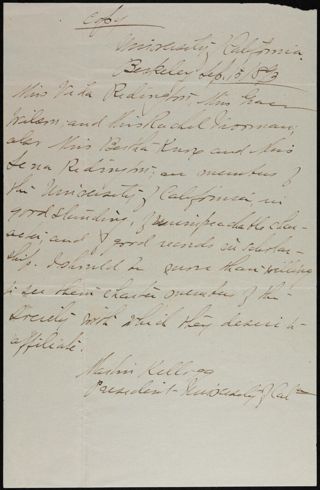 Copy
University of California
Berkeley Sep. 15 1893
Miss Redington, Miss Grace
Wilson, and Miss Rachel Vrooman;
also Miss Bertha Knox and Miss
Lena Redington; are members of
the University of California, in
good standing, of unimpeachable char-
acter, and of good records in scholar-
ship. I should be more than willing
to see them charter members of the
Society with which they desire to
affiliate.
Martin Kellogg
President University of Cal